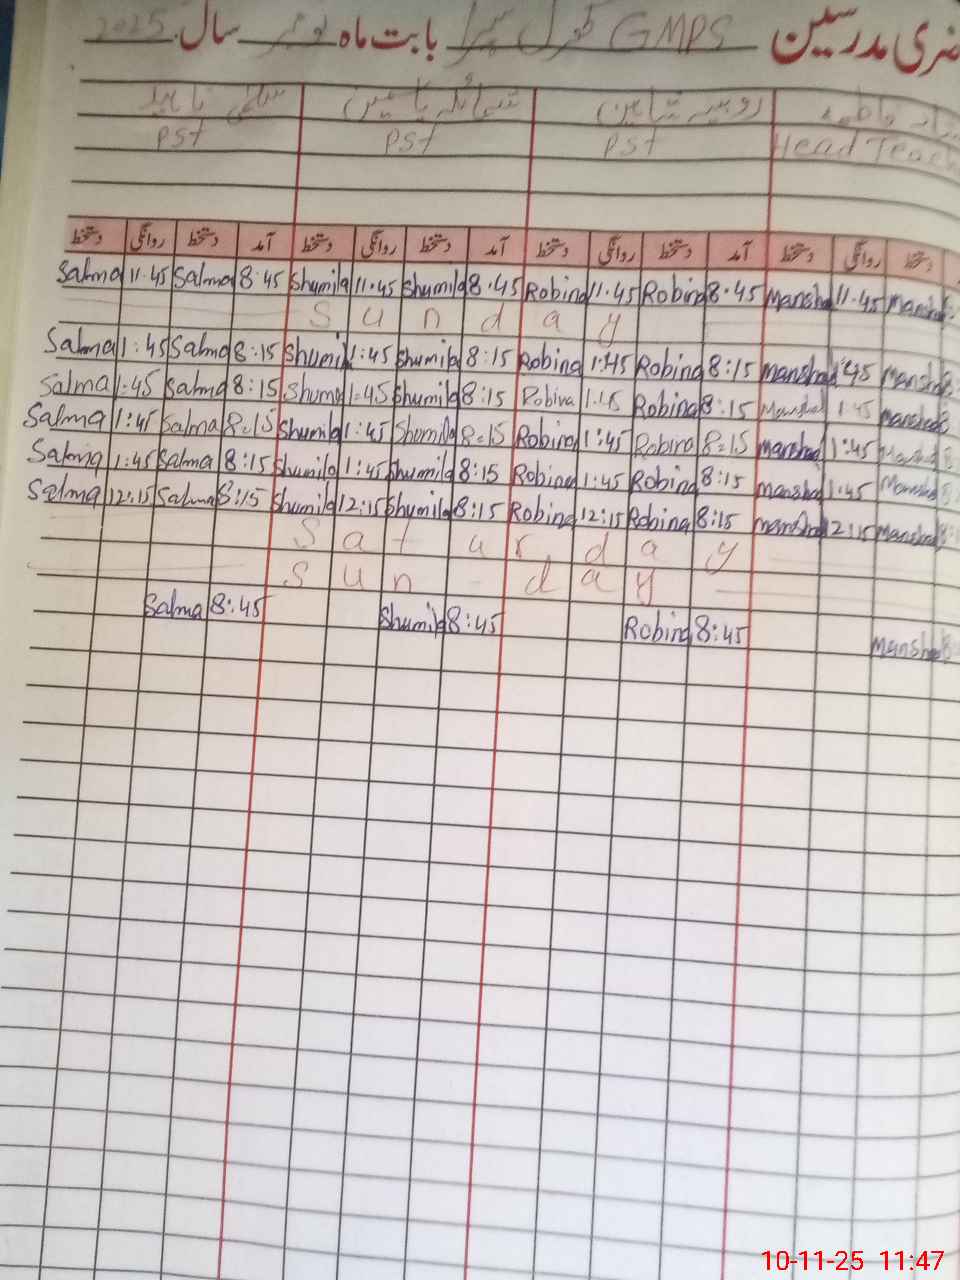 ضری مدرسین GMPS بابت ماہ نومبر سال 2025
روبینہ شاہین شمائلہ یاسمین سلمیٰ ناہید
Head Teach PST PST PST
دستخط روانگی دستخط آمد دستخط روانگی دستخط آمد دستخط روانگی دستخط آمد دستخط روانگی دستخط
Salma 11.45 Salma 8:45 Shumila 11.45 Shumila 8.45 Robina 11.45 Robina 8.45 Mansha 11.45 Mansha 8:
Sunday
Salma 1:45 Salma 8:15 Shumil 1:45 Shumila 8:15 Robina 1:45 Robina 8:15 Mansha 1:45 Mansha 8
Salma 1:45 Salma 8:15 Shuma 1:45 Shumila 8:15 Robina 1:45 Robina 8:15 Mansha 1:45 Mansha 8
Salma 1:45 Salma 8:15 Shumila 1:45 Shumila 8:15 Robina 1:45 Robina 8:15 Mansha 1:45 Mansha 8:
Salma 1:45 Salma 8:15 Shumila 1:45 Shumila 8:15 Robina 1:45 Robina 8:15 Mansha 1:45 Mansha 8:
Salma 12:15 Salma 8:15 Shumila 12:15 Shumila 8:15 Robina 12:15 Robina 8:15 Mansha 12:15 Mansha 8:
Saturday
Sunday
Salma 8:45 Shumila 8:45 Robina 8:45 Mansha 8:
10-11-25 11:47